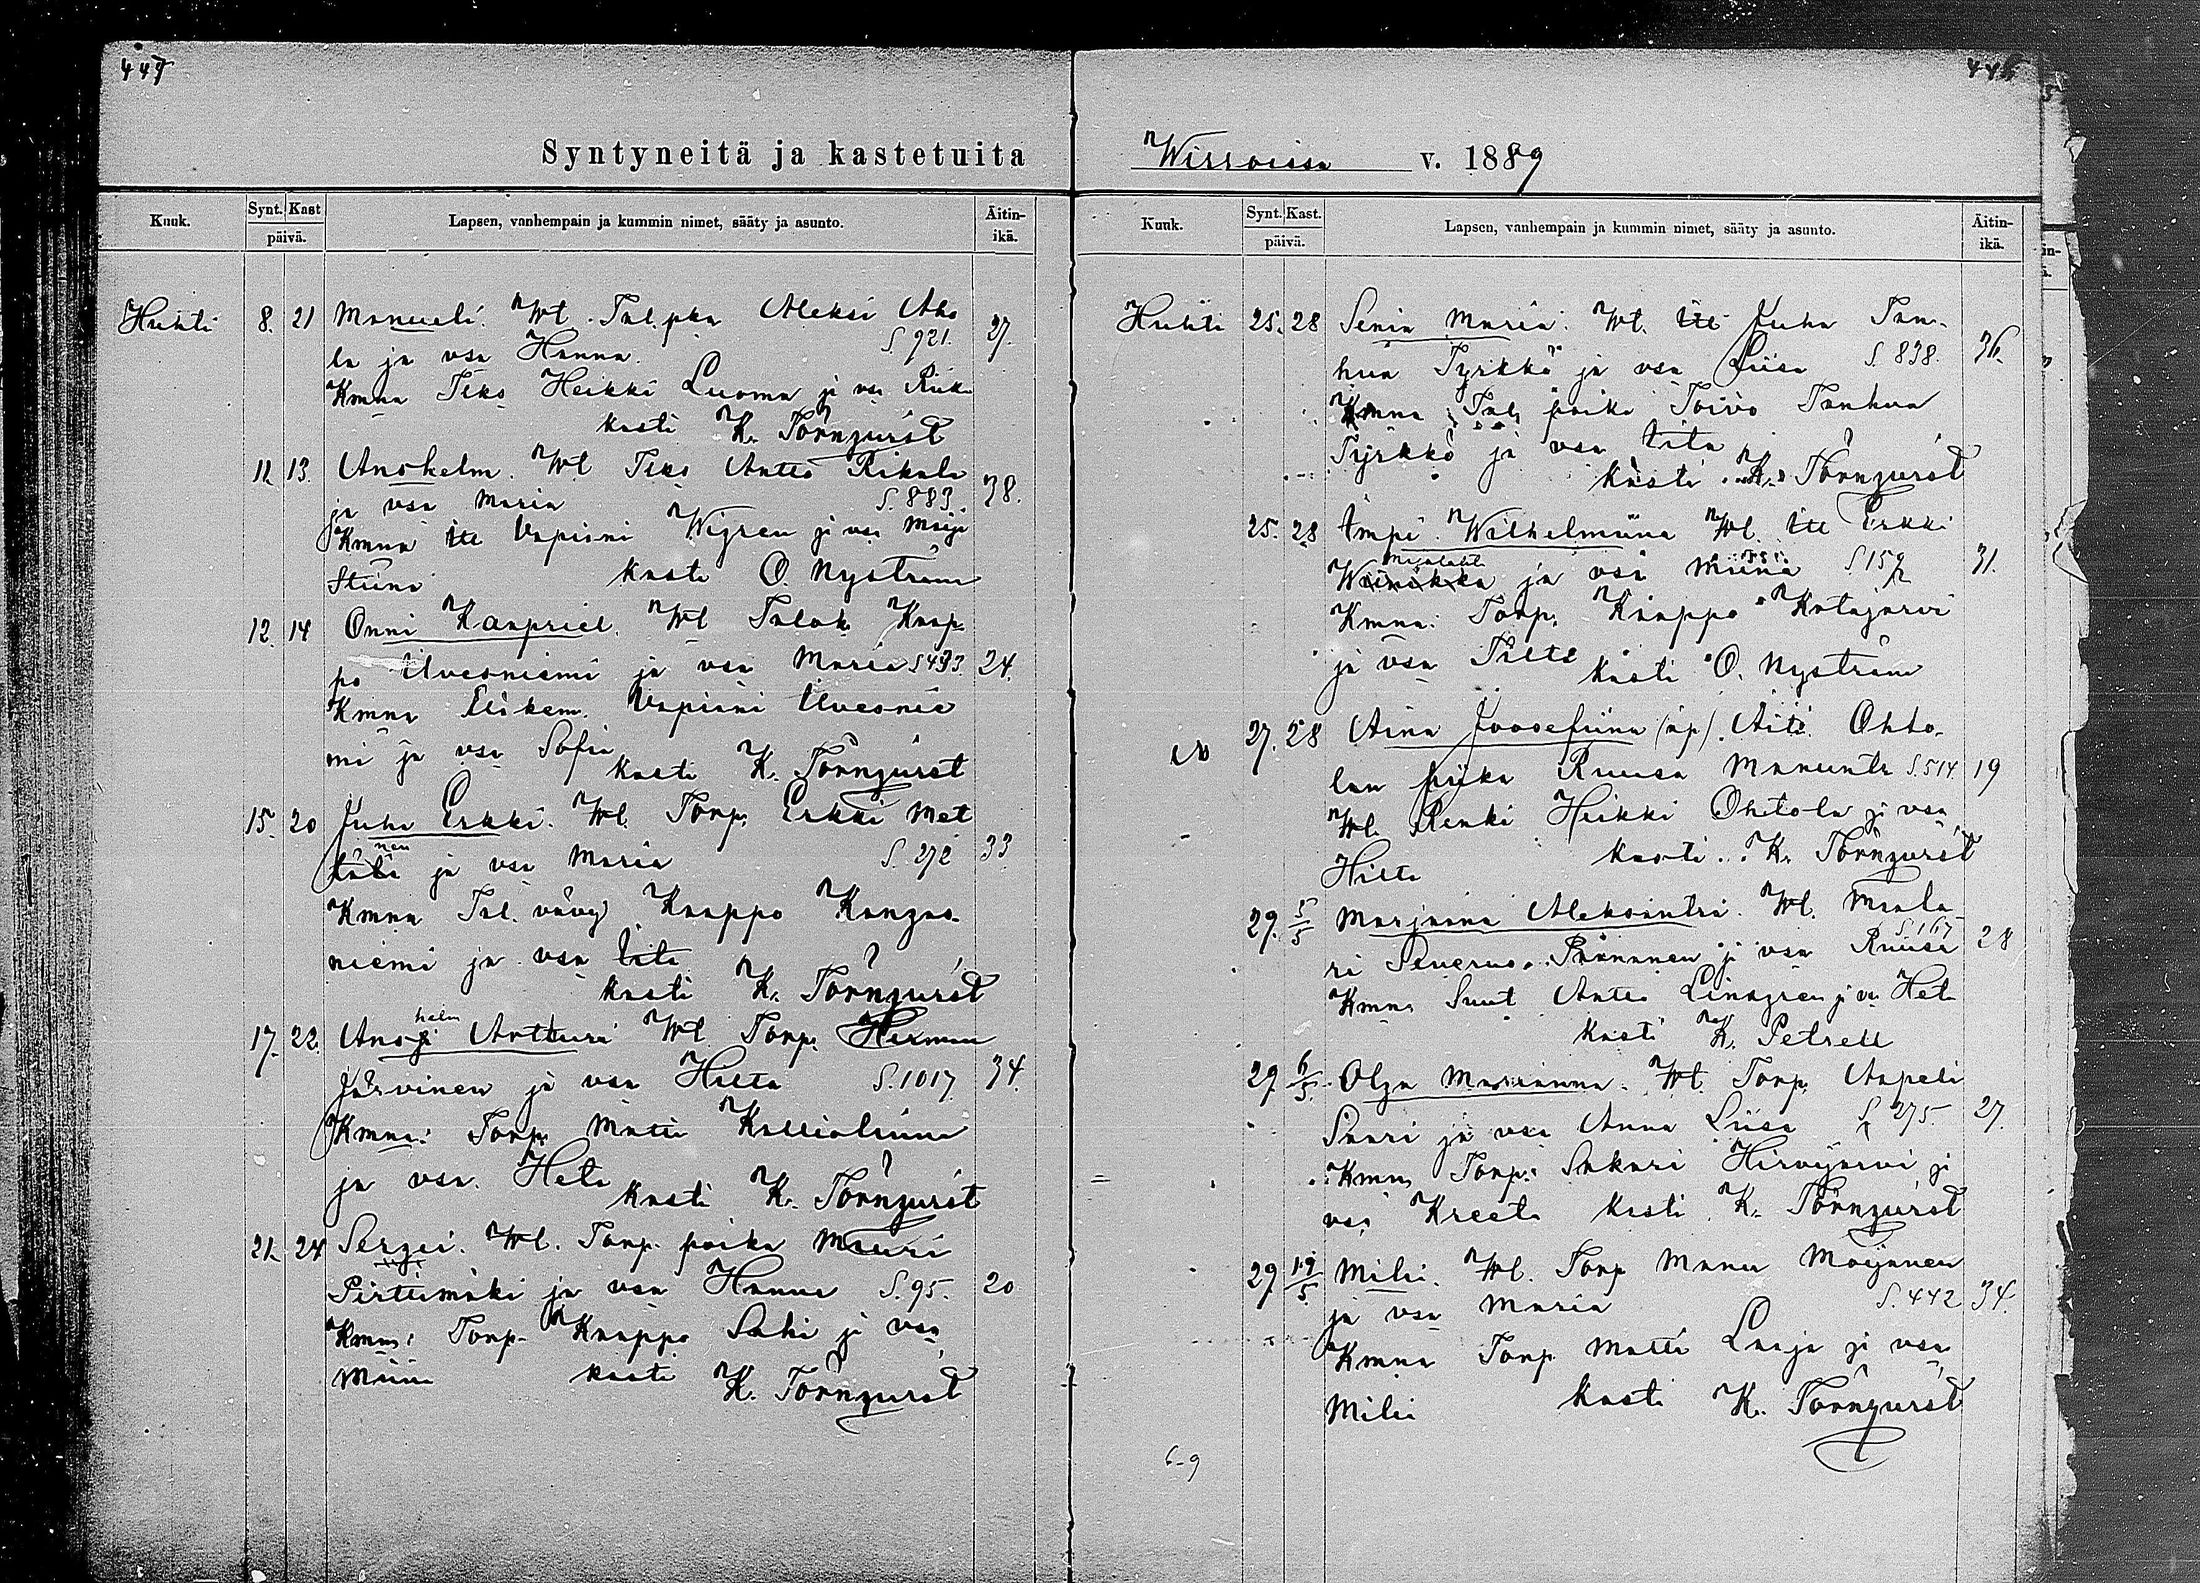 447
Syntyneitä ja kastetuita
Kuuk.
Synt. Kast
päivä.
Lapsen, vanhempain ja kummin nimet, sääty ja asunto.
Äitin-
ikä.
Huhti 8. 21 Manueli. Wl. Tal. pka Aleksi Aho
la ja vsa Hanna. S. 921. 27.
Kmna Itks Heikki Luoma ja vsa Riika
kasti K. Törnqurst
11. 13. Anshelm. Wl Itks Antto Rikala
ja vsa Maria S. 883 38.
Kmna Itl Vapiani Wigren ja vsa Maija
Stiina kasti O. Nyström
12. 14 Onni Kaapriel. Wl Talok. Kaap-
po Ulvesniemi ja vsa Maria S 493. 24.
Kmna Vapiani Ulvesnie
mi ja vsa Sofia
kasti K. Törnqurst
15. 20 Juho Erkki. Wl. Torp. Erkki Met
nen
ja vsa Maria S. 272 33
Kmna Tal. vävy Kaappo Kangas-
niemi ja vsa Iita
kasti K. Törnqurst
17. 22. Ans helm Artturi Wl Torp. Herman
Järvinen ja vsa Hilta S. 1017 34.
Kmna: Torp. Matti Kallioliina
ja vsa. Heta
kasti K. Törnqurst
21. 24 Sergei. Wl. Torp. poika Mauri
Pirttimäki ja vsa Hanna S. 95. 20
Kmna: Torp. Kaappo Sahi ja vsa
Miina kasti K. Törnqurst
Wirroissa v. 1889
Kuuk.
Synt. Kast.
päivä.
Lapsen, vanhempain ja kummin nimet, sääty ja asunto.
Äitin-
ikä.
Huhti 25. 28 Senia Maria. Wl. Itl Juha Tan-
hua Tyrkkö ja vsa Liisa S. 838. 36.
Kmna Tal. poika Toivo Tanhua
Tyrkkö ja vsa Iita
kasti K. Törnqurst
25. 28 Impi Wilhelmiina Wl. Itl Erkki
Wainikka ja vsa Miina S 157 31.
Kmna: Torp. Kaappo Katajarvi
ja vsa Tilta kasti O. Nyström
27. 28 Aina Joosefiina (äp). Äiti Ohto-
lan piika Ruusa Mananta S. 514 19
Wl. Renki Heikki Ohtola ja vsa
Hilta kasti K. Törnqurst
29. 5/5 Marjaana Aleksantra. Wl. Maala
ri Severus Paananen ja vsa Ruusa S. 167 28
Kmna Suut Antto Lindgren ja vsa Heta
kasti K. Petrell
29. 6/5. Olga Marianna. Wl. Torp. Aapeli
Saari ja vsa Anna Liisa S 275. 27.
Kmna Torp. Sakari Hirvijärvi ja
vsa Kreeta kasti K. Törnqurst
29. 19/5. Milia. Wl. Torp Manu Moijanen
ja vsa Maria S. 442 34.
Kmna Torp Matti Laaja ja vsa
Milia kasti K. Törnqurst
6-9